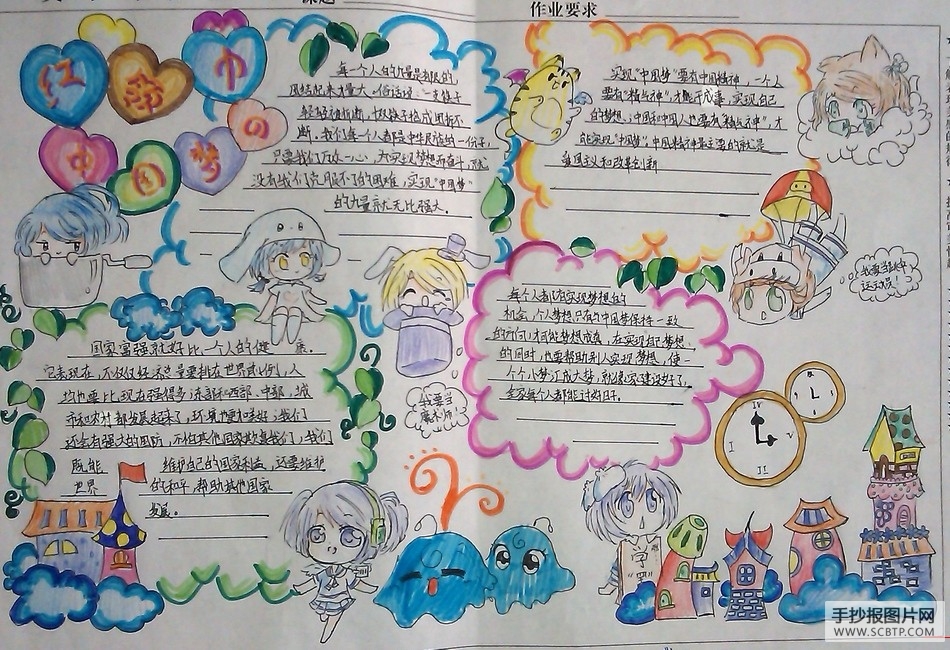 作业要求
红领巾
的
中国梦
每一个人的力量是有限的
团结起来力量大。俗话说:"一支筷子
轻轻被折断,十双筷子抱成团折不
断。我们每一个人都是中华民族的一份子,
只要我们万众一心,为实现梦想而奋斗,就
没有我们克服不了的困难,实现"中国梦"
的力量就无比强大。
实现"中国梦"要有中国精神,一个人
要有"精气神",才能干成事,实现自己
的梦想,中国和中国人也要有"精气神",才
能实现"中国梦",中国精神最主要的就是
爱国主义和改革创新
我要当
每个人都有实现梦想的
机会,个人梦想只有和中国梦保持一致
的方向,才有能梦想成真,在实现自己梦想
的同时,也要帮助别人实现梦想,使
个个小梦汇成大梦,就
每个人都能
我要当
魔术师!
国家富强就好比一个人的健康。
均也要比现在强很多;东部和西部、中部、城
市和农村都发展起来了,环境也更美好;我们
还会有强大的国防,不怕其他国家欺负我们,我们
既能
维护自己的国家利益,还要维护
世界
的和平,帮助其他国家
发展。
手抄报图片网
WWW.SCBTP.COM